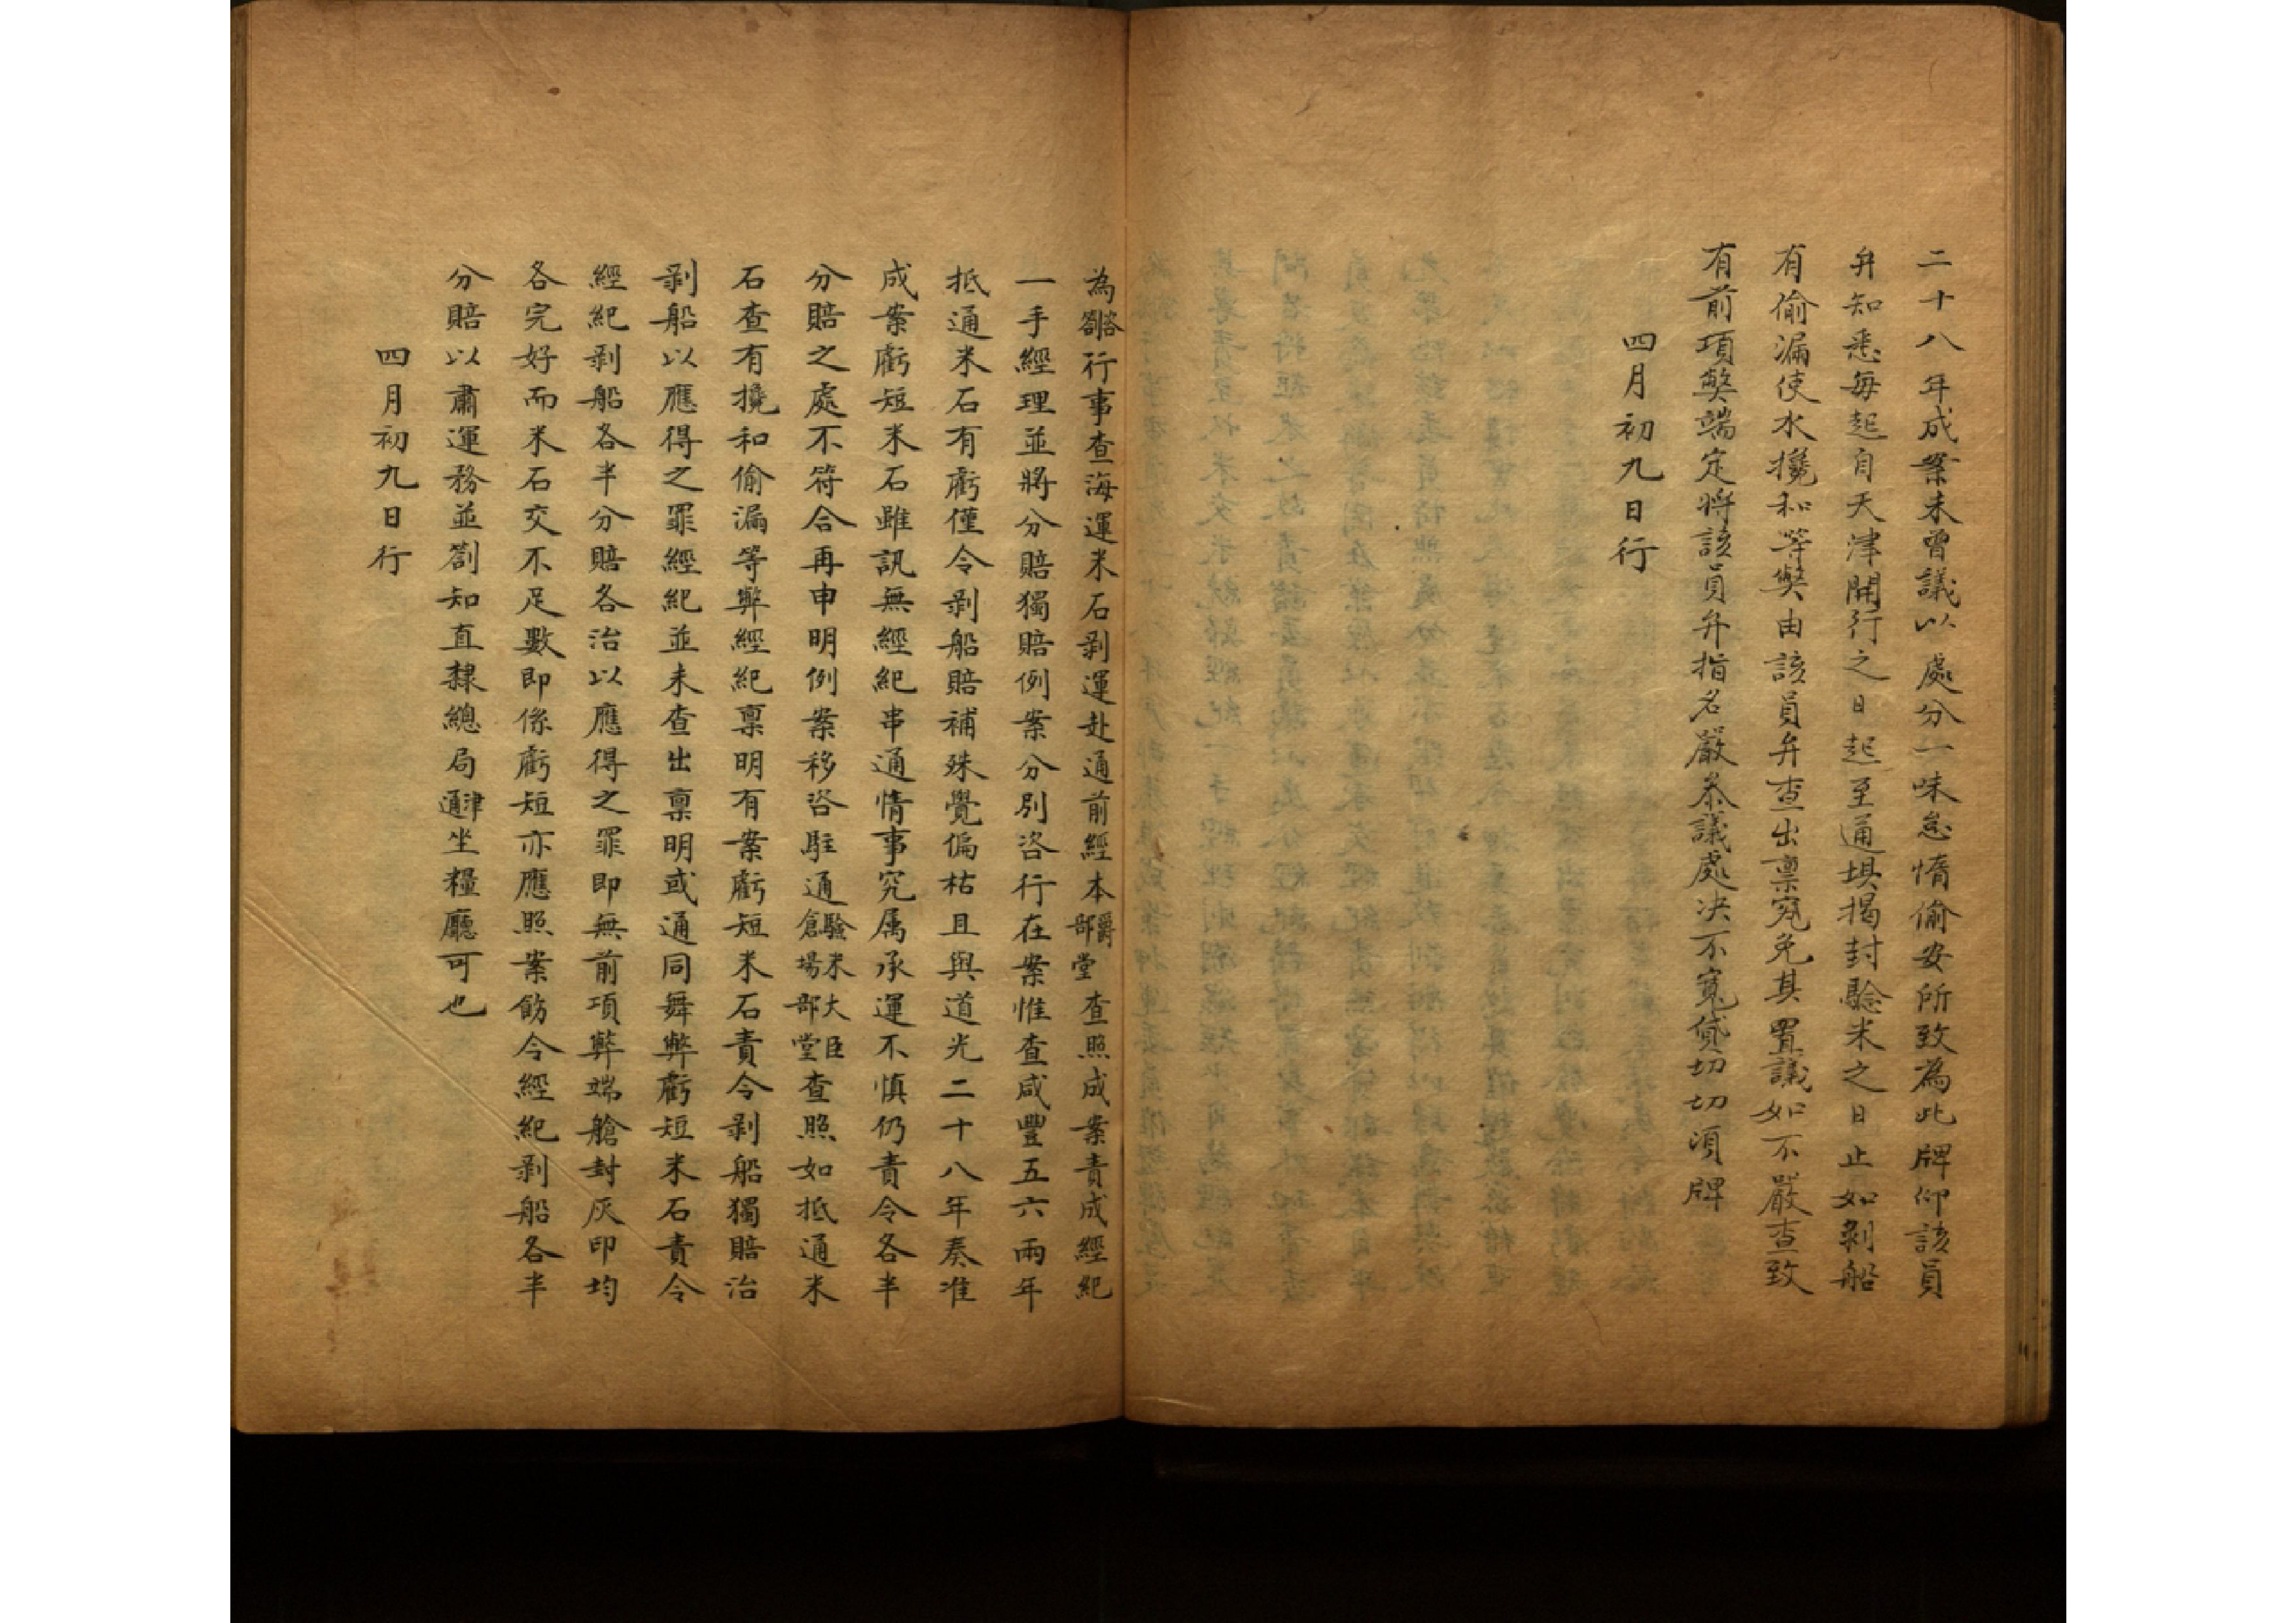 二十八年成案未曾議以處分一味怠惰偷安所致為此牌仰該員
弁知悉每起自天津開行之日起至通垻揭封驗米之日止如剝船
有偷漏使水攙和等獘由該員弁查出禀究免其置議如不嚴查致
有前項獘端定將該員弁指名嚴叅議處決不寬貸切切湏牌
四月初九日行
為咨劄行事查海運米石剝運赴通前經本爵部堂查照成案責成經紀
一手經理並將分賠獨賠例案分別咨行在案惟查咸豐五六兩年
抵通米石有虧僅令剝船賠補殊覺偏枯且與道光二十八年奏准
成案虧短米石雖訊無經紀串通情事究属承運不慎仍責令各半
分賠之處不符合再申明例案移咨駐通驗米大臣倉場部堂查照如抵通米
石查有攙和偷漏等弊經紀禀明有案虧短米石責令剝船獨賠治
剝船以應得之罪經紀並未查出禀明或通同舞弊虧短米石責令
經紀剝船各半分賠各治以應得之罪即無前項弊端艙封灰印均
各完好而米石交不足數即係虧短亦應照案飭令經紀剝船各半
分賠以肅運務並劄知直隸總局津通坐糧廳可也
四月初九日行